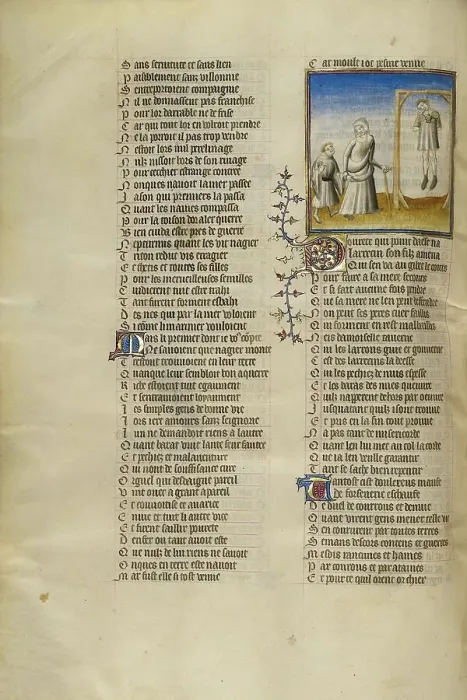 Sans seruitute et sans lien
Paisiblement sanz villonnie
Sentreportoient compaignie
Nil ne donnassent pas franchise
Pour lor darrable ne de frise
Car qui tout lor en voldroit prendre
Ne la porroit il pas trop vendre
Nestoit lors nul pelerinage
Nulz nissoit hors de son riuage
Pour cerchier estrange contree
Nonques nauoit la mer passee
Iason qui premiers la passa
Quant les nauies compassa
Pour la toison dor aler querre
Bien cuida estre pris de guerre
Neptunus quant les vit nagier
Triton redut vis erragier
Et et toutes ses filles
Por les merueilleuses semilles
Cuidierent tuit estre trahi
Tant furent forment esbahi
Des nes qui par la mer voloient
Si come li marinier vouloient
Mais li premier dont ie vo compte
Ne sauoient que nagier monte
Trestout trouuoient en leur terre
Quanque leur sembloit bon a querre
Riche estoient tuit egaument
Et sentramoient loyaument
Les simples gens de bonne vie
Lors iert amours sanz seignorie
Lun ne demandoit riens a lautre
Quant barat vint lance seur fautre
Et pechiez et malauenture
Qui nont de souffisance cure
Orguel qui desdaigne pareil
Vint auec a grant apareil
Et couuoitise et auarice
Enuie et tuit li autre vice
Et firent saillir pourete
Denfer ou tant auoit este
Que nulz de lui riens ne sauoit
Onques en terre este nauoit
Mar fust elle si tost venue
Car moult i ot pesme venue
Pourete qui point de sens na
Larrecin son filz amena
Qui sen va au gibet le cours
Pour faire a sa mere secours
Et si fait aucune fois pendre
Que sa mere ne len peut deffendre
Non peut ses peres cuer faillis
Qui forment en rest malbaillis
Neis damoiselle
Qui les larrons guie et gouuerne
Cest des larrecins la deesse
Qui les pechiez de nuis espesse
Et les baras des nues queuure
Quilz naperent dehors par oeuure
Iusquatant quilz i sont trouue
Et pris en la fin tout prouue
Na pas tant de misericorde
Quant len lui met au col la corde
Que ia len veille garantir
Tant se sache bien repentir
Tantost cist douleureus maufe
De forsenerie eschaufe
De duel de courrous et denuie
Quant virent gens mener celle vie
Sen coururent par toutes terres
Semans descors contens et guerres
Mesdis rancunes et haines
Par courous et par ataines
Et pour ce quil orent or chier